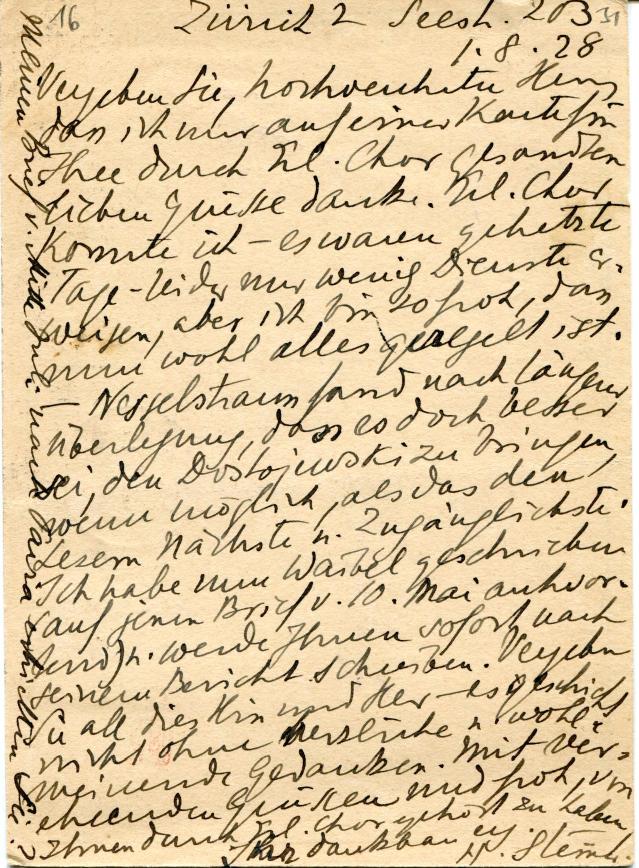 16
31
Zürich 2 Seestr. 203
1.8.28
Vergeben Sie, hochverehrter Herr,
dass ich nur auf einer Karte für
Ihre durch Frl. Chor gesandten
lieben Grüsse danke. Frl. Chor
konnte ich – es waren gehetzte
Tage – leider nur wenig Dienste er-
weisen, aber ich bin so froh, dass
nun wohl alles geregelt ist.
Nesselstrauss fand nach langer
Überlegung, dass es doch besser
sei, den Dostojewski zu bringen,
wenn möglich, als das den
Lesern Nächste u. Zugänglichste.
Ich habe nun Waibel geschrieben
(auf jenen Brief v. 10. Mai antwor-
tend) u. werde Ihnen sofort nach
seinem Bericht schreiben. Vergeben
Sie all dies Hin und Her – es geschieht
nicht ohne herzliche u. wohl-
meinende Gedanken. Mit ver-
ehrenden Grüssen und froh, von
Ihnen durch Frl. Chor gehört zu haben,
Ihr dankbar erg.
Meinen Brief v. Mitte Juli nach erhielten Sie?